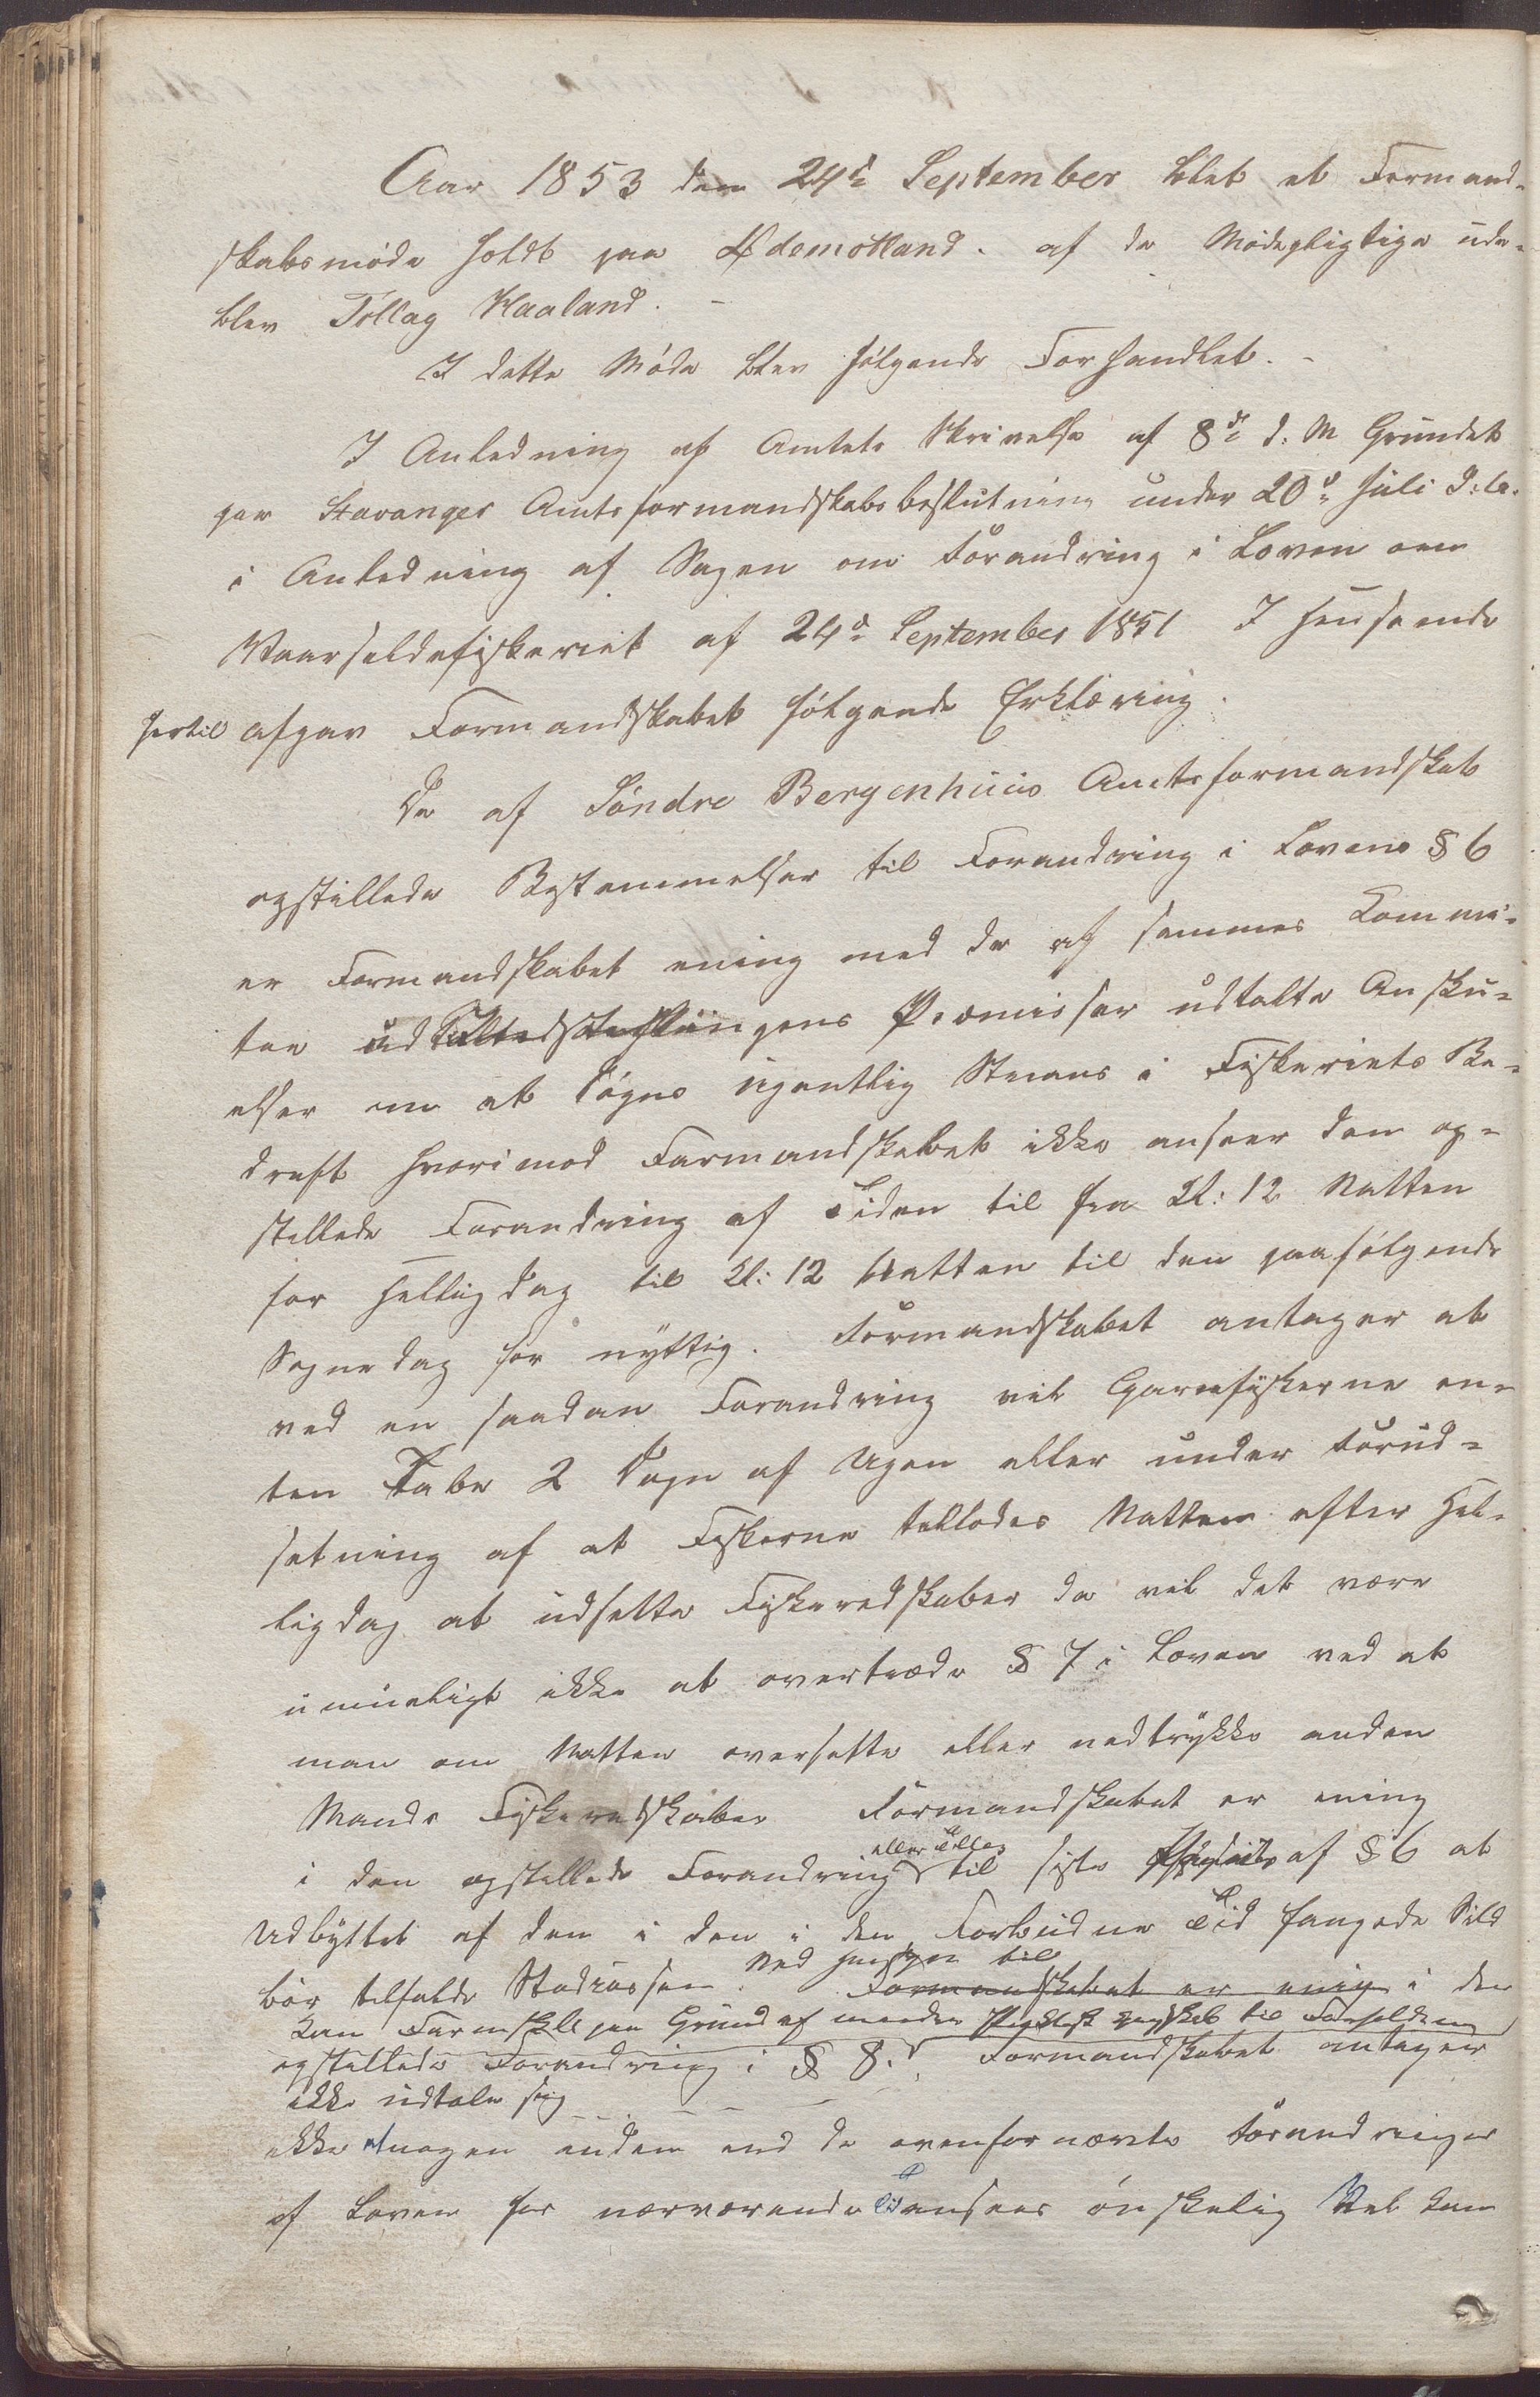 Aar 1853 den 24de September blev et Formand-
skabsmøde holdt paa Ødemotland. af de Mødepligtige ude-
blev Tollag Haaland. -
I dette Møde blev følgende Forhandlet. -
I Anledning af Amtets Skrivelse af 8de d: M Grundet
paa Stavanger Amtsformandskabsbeslutning under 20d Juli d: A.
i Anledning af Sagen om Forandring i Loven om
Vaarsildefiskeriet af 24d September 1851 I Henseende
hertil afgav Formandskabet følgende Erklæring.
De af Söndre Bergenhuus Amtsformandskab
opstillede Bestemmelser til Forandring i Lovens § 6
er Formandskabet enig med de af sammes Commi-
tee Præmisser udtalte Ansku-
elser om at Døgnes Ugentlig Stands i Fiskeriets Be-
dreft hvorimod Formandskabet ikke anseer den op-
stillede Forandring af Tiden til fra Kl: 12 Natten
for Helligdag til Kl: 12 Natten til den paafølgende
Søgnedag for nyttig. Formandskabet antager at
ved en saadan Forandring vil Garnfiskerne en-
ten Tabe 2 Døgn af Ugen eller under Forud-
sætning af at Fiskerne tillodes Natten efter Hel-
ligdag at udsette Fiskeredskaber da vil det være
umueligt ikke at overtræde § 7 i Loven ved at
man om Natten oversette eller nedtrykke anden
Mands Fiskeredskaber Formandskabet er enig
eller Tillæg
i den opstillede Forandring til siste af § 6 at
Udbyttet af den i den i den Forbudne Tid fangede Sild
Med Hensyn til
bør tilfalde Statskassen Formandskabet er enig i den
kan Formskbt paa Grund af mindre Kjendskab til Forholdene
opstillede Forandring i § 8. Formandskabet antager
ikke udtale sig
ikke at nogen anden end de ovenfornævnte Forandringer
af Loven for nærværende Tid ansees ønskelig Vel kan